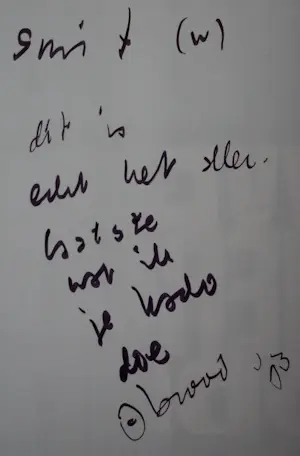 Smit (w)
dit is
echt het aller.
laatste
wat ik
je kado
doe
brood '93